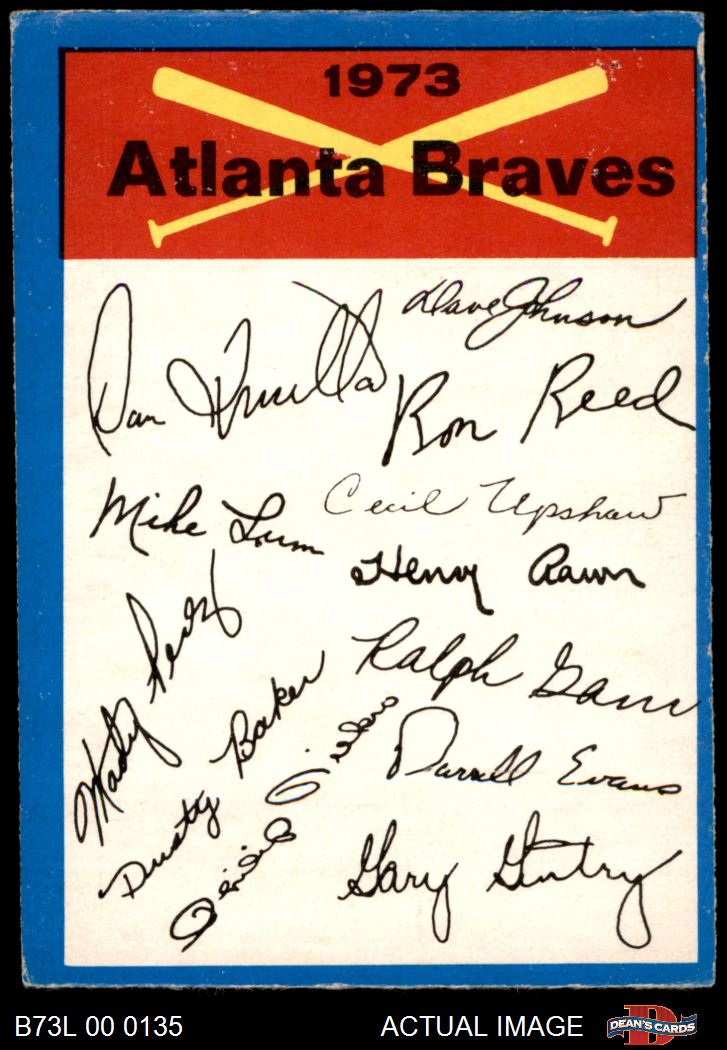 1973
Atlanta Braves
Dan Frisella
Dave Johnson
Ron Reed
Mike Lum
Cecil Upshaw
Henry Aaron
Marty Perez
Ralph Garr
Dusty Baker
Darrell Evans
Gary Gentry
B73L 00 0135
ACTUAL IMAGE
D
DEAN'S CARDS